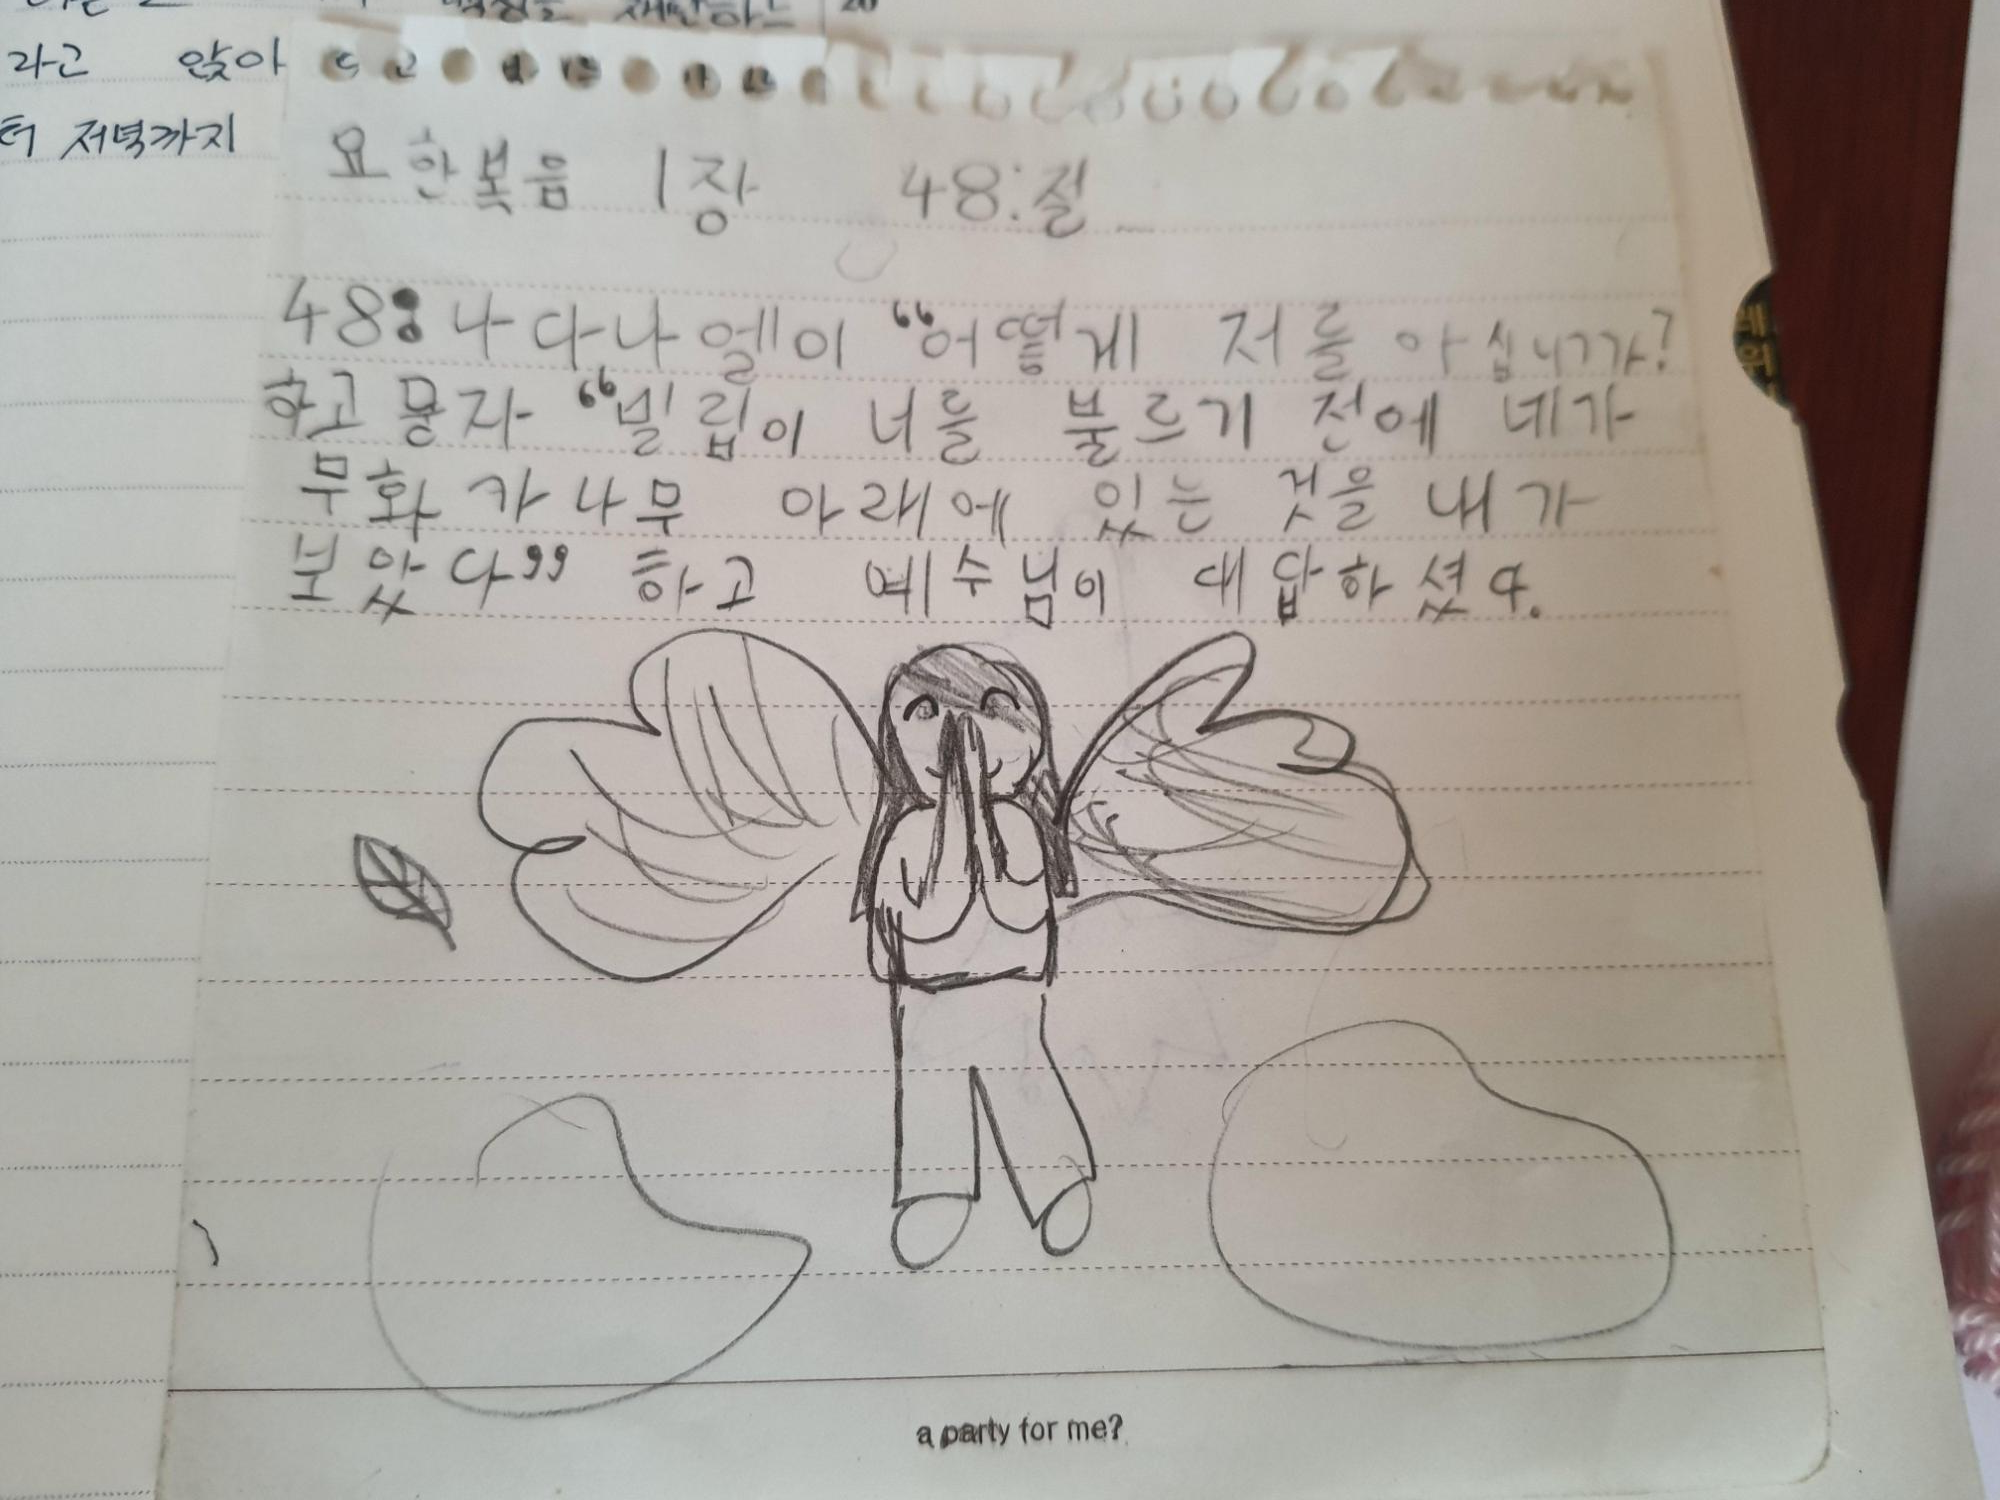 라고 앉아
터 저녁까지
요한복음 1장 48:절
48: 나다나엘이 “어떻게 저를 아십니까?
하고 묻자 “빌립이 너를 불르기 전에 네가
무화가나무 아래에 있는 것을 내가
보았다” 하고 예수님이 대답하셨다.
a party for me?